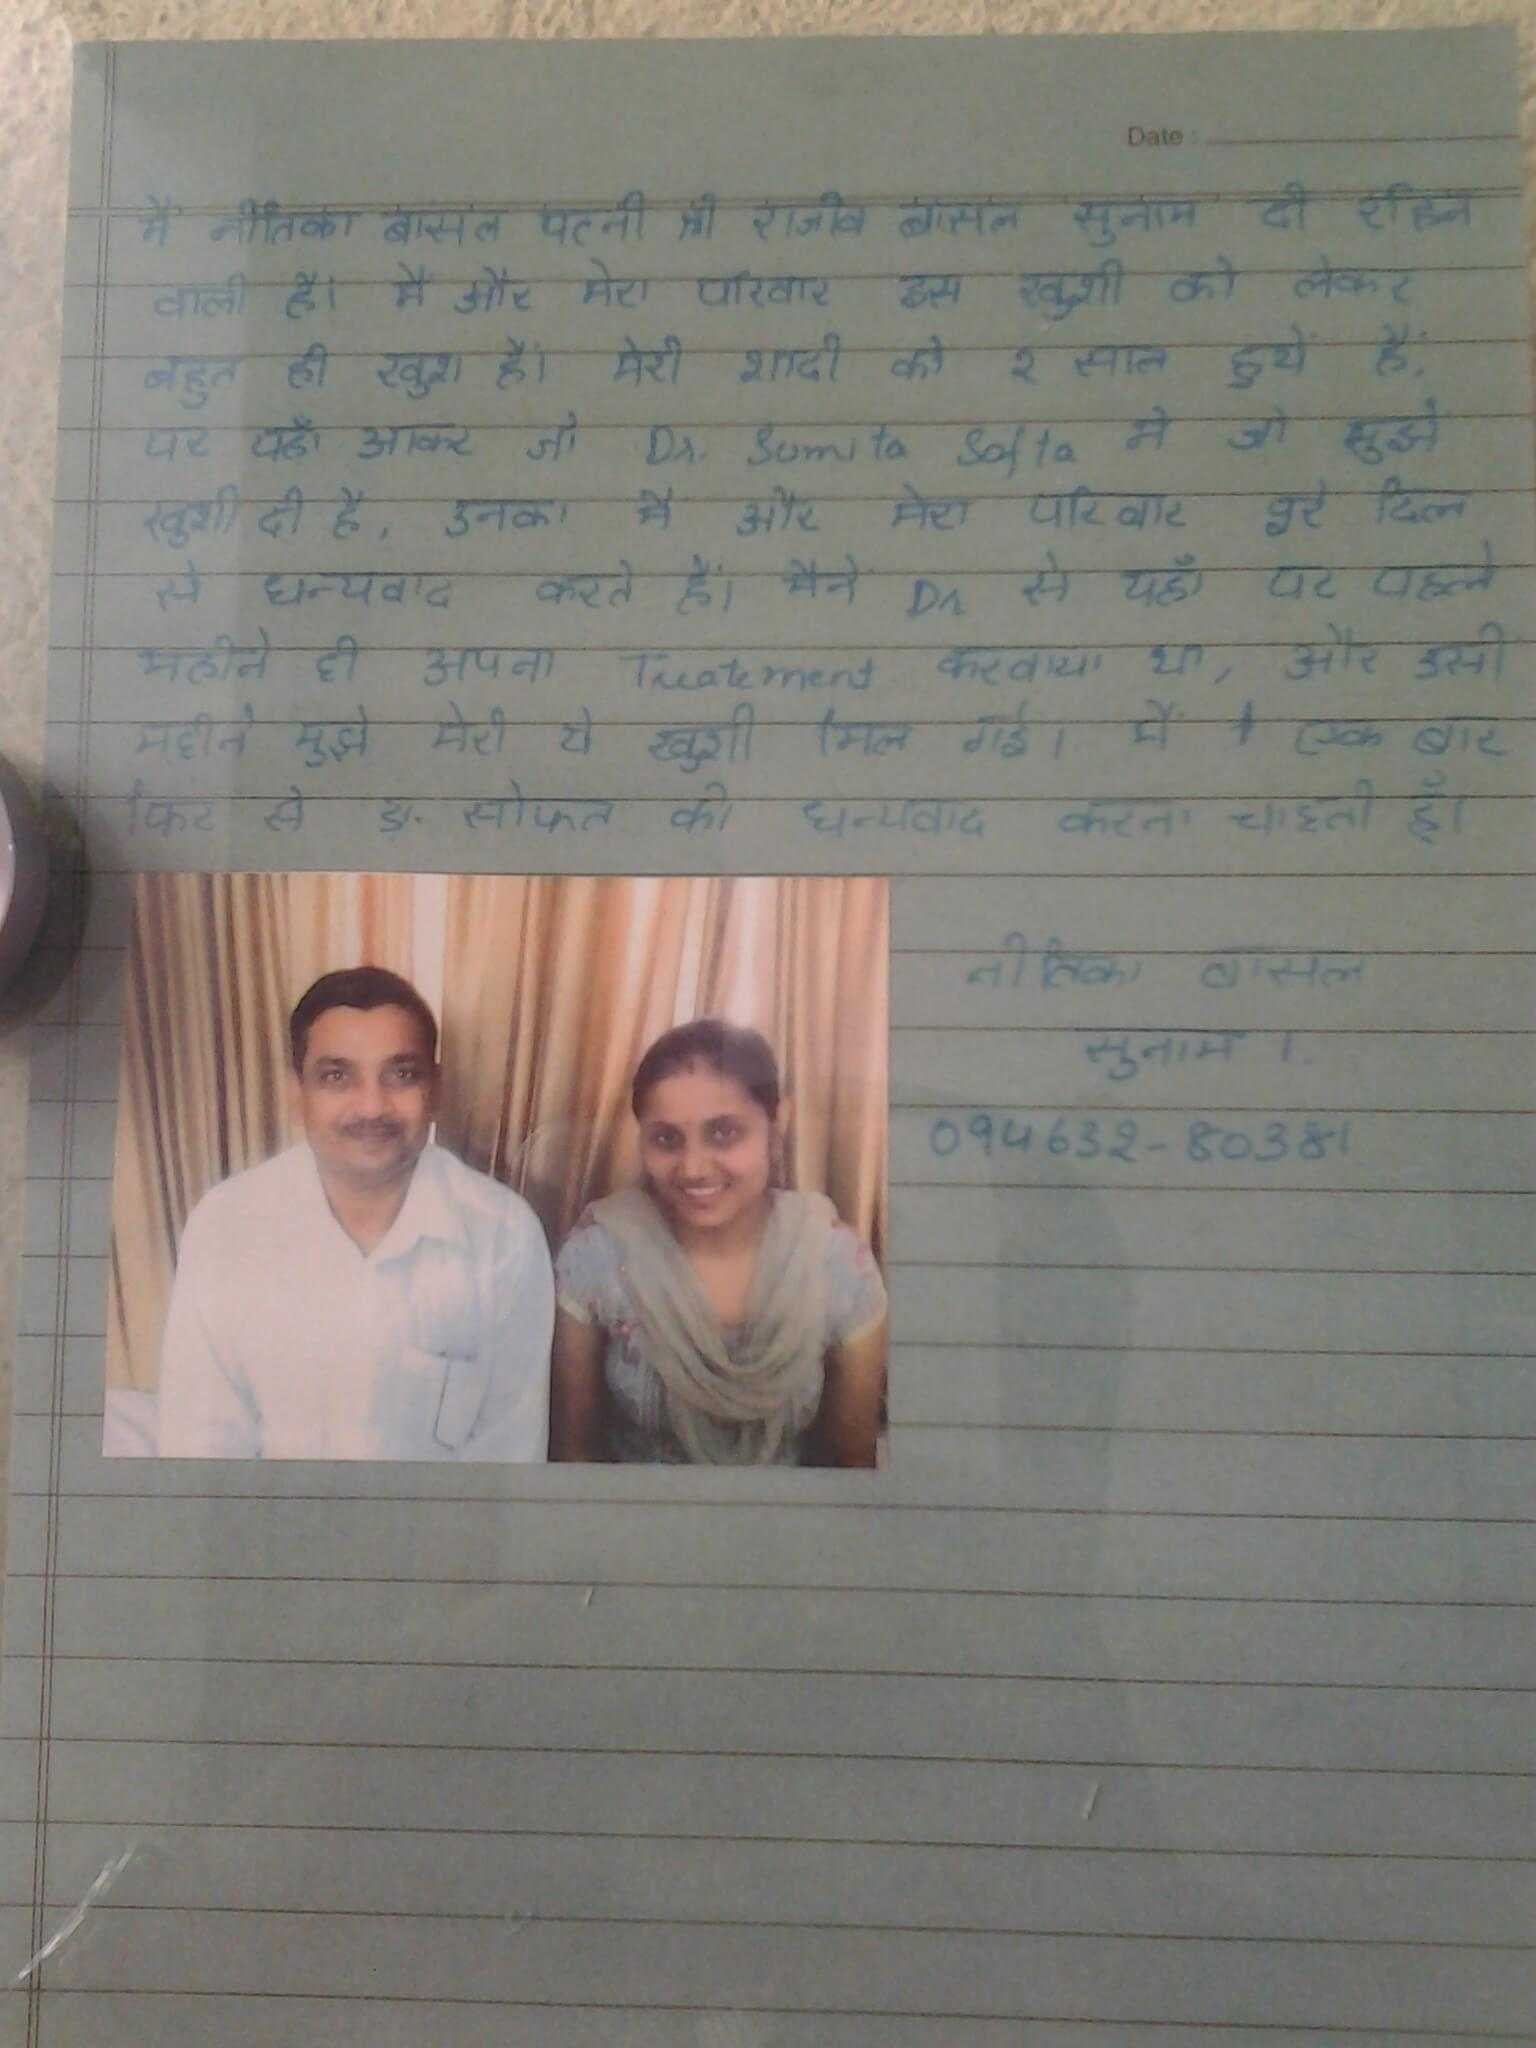 Date :
मैं नीतिका बासंल पत्नी श्री राजीव बासंल सुनाम दी रहिन
वाली है। मैं और मेरा परिवार इस खुशी को लेकर
बहुत ही खुश हैं। मेरी शादी को २ साल हुये हैं,
पर यहाँ आकर जो Dr. Sumita Softa ने जो मुझे
खुशी दी है, उनका मैं और मेरा परिवार पूरे दिल
से धन्यवाद करते हैं। मैनें Dr से यहाँ पर पहले
महीने ही अपना Treatement करवाया था, और उसी
महीने मुझे मेरी ये खुशी मिल गई। मैं एक बार
फिर से डा. सोफत की धन्यवाद करना चाहती हूँ।
नीतिका बासंल
सुनाम ।
094632-80381